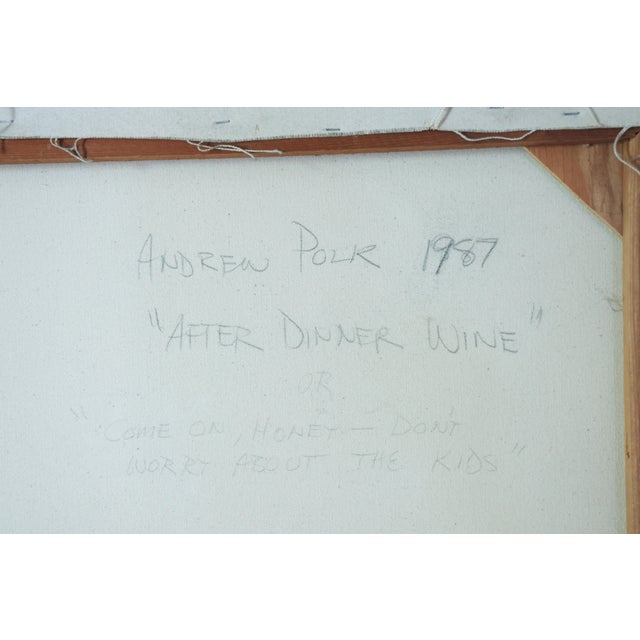 ANDREW POLK 1987
"AFTER DINNER WINE"
OR
"COME ON, HONEY — DON'T
WORRY ABOUT THE KIDS"